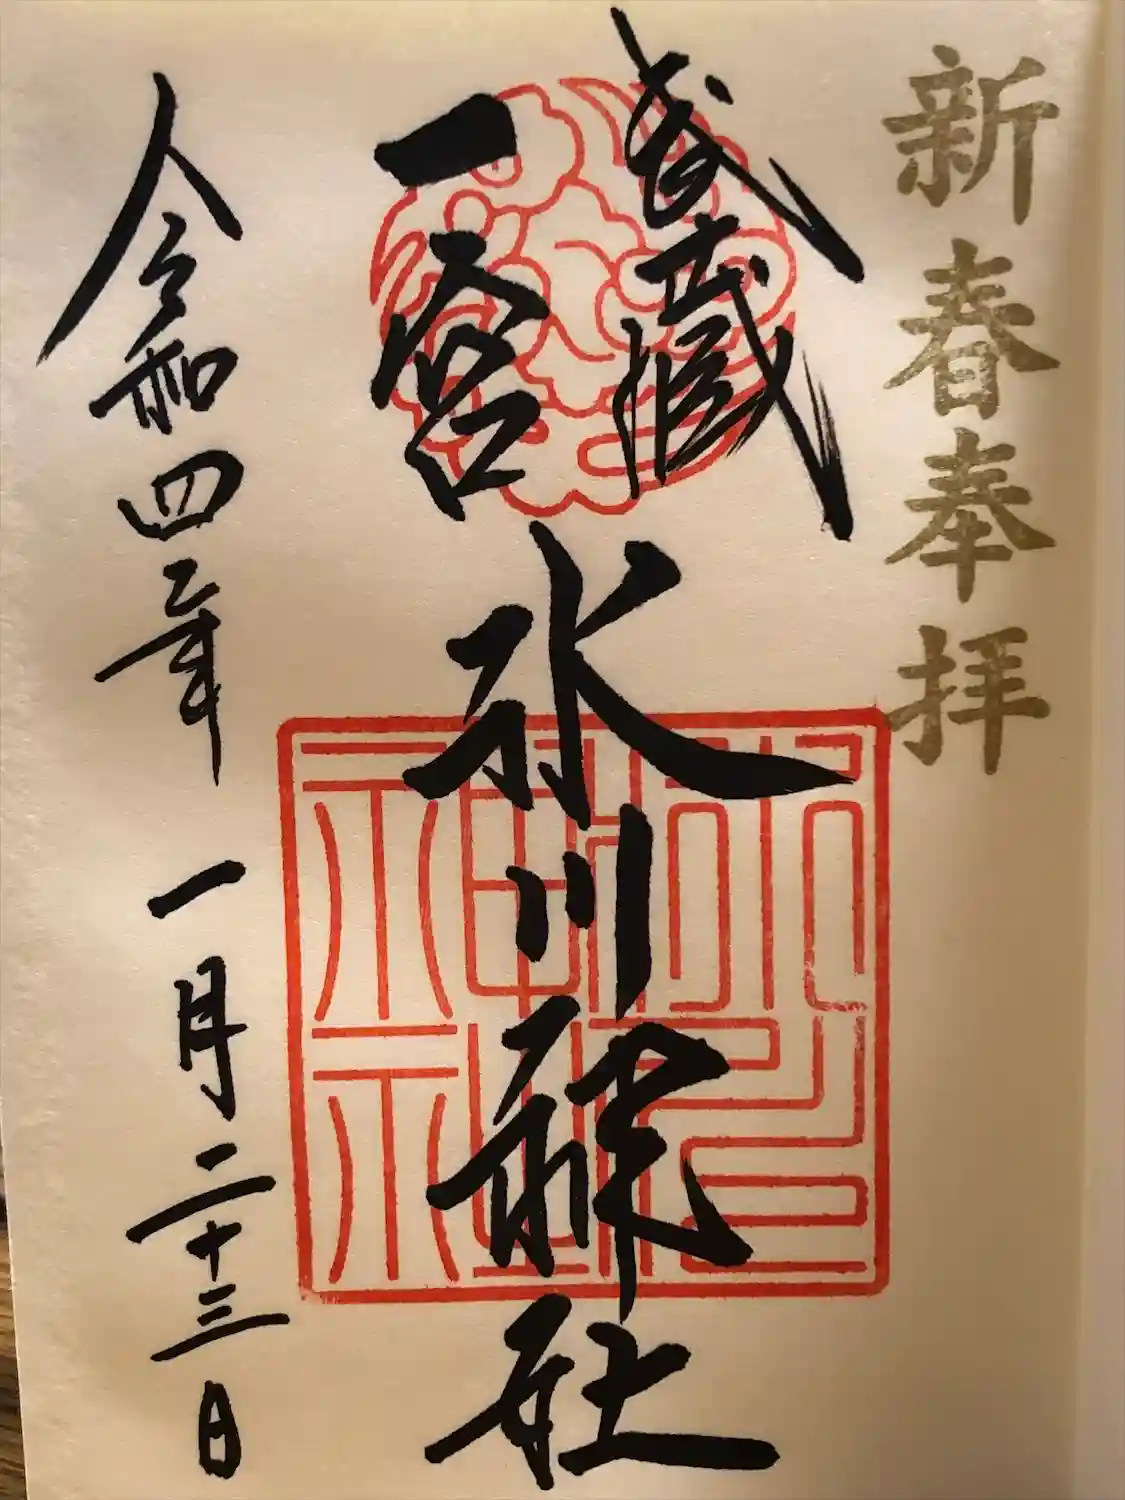 新春奉拝
武蔵
一宮
氷川神社
令和四年 一月二十三日
氷川神社